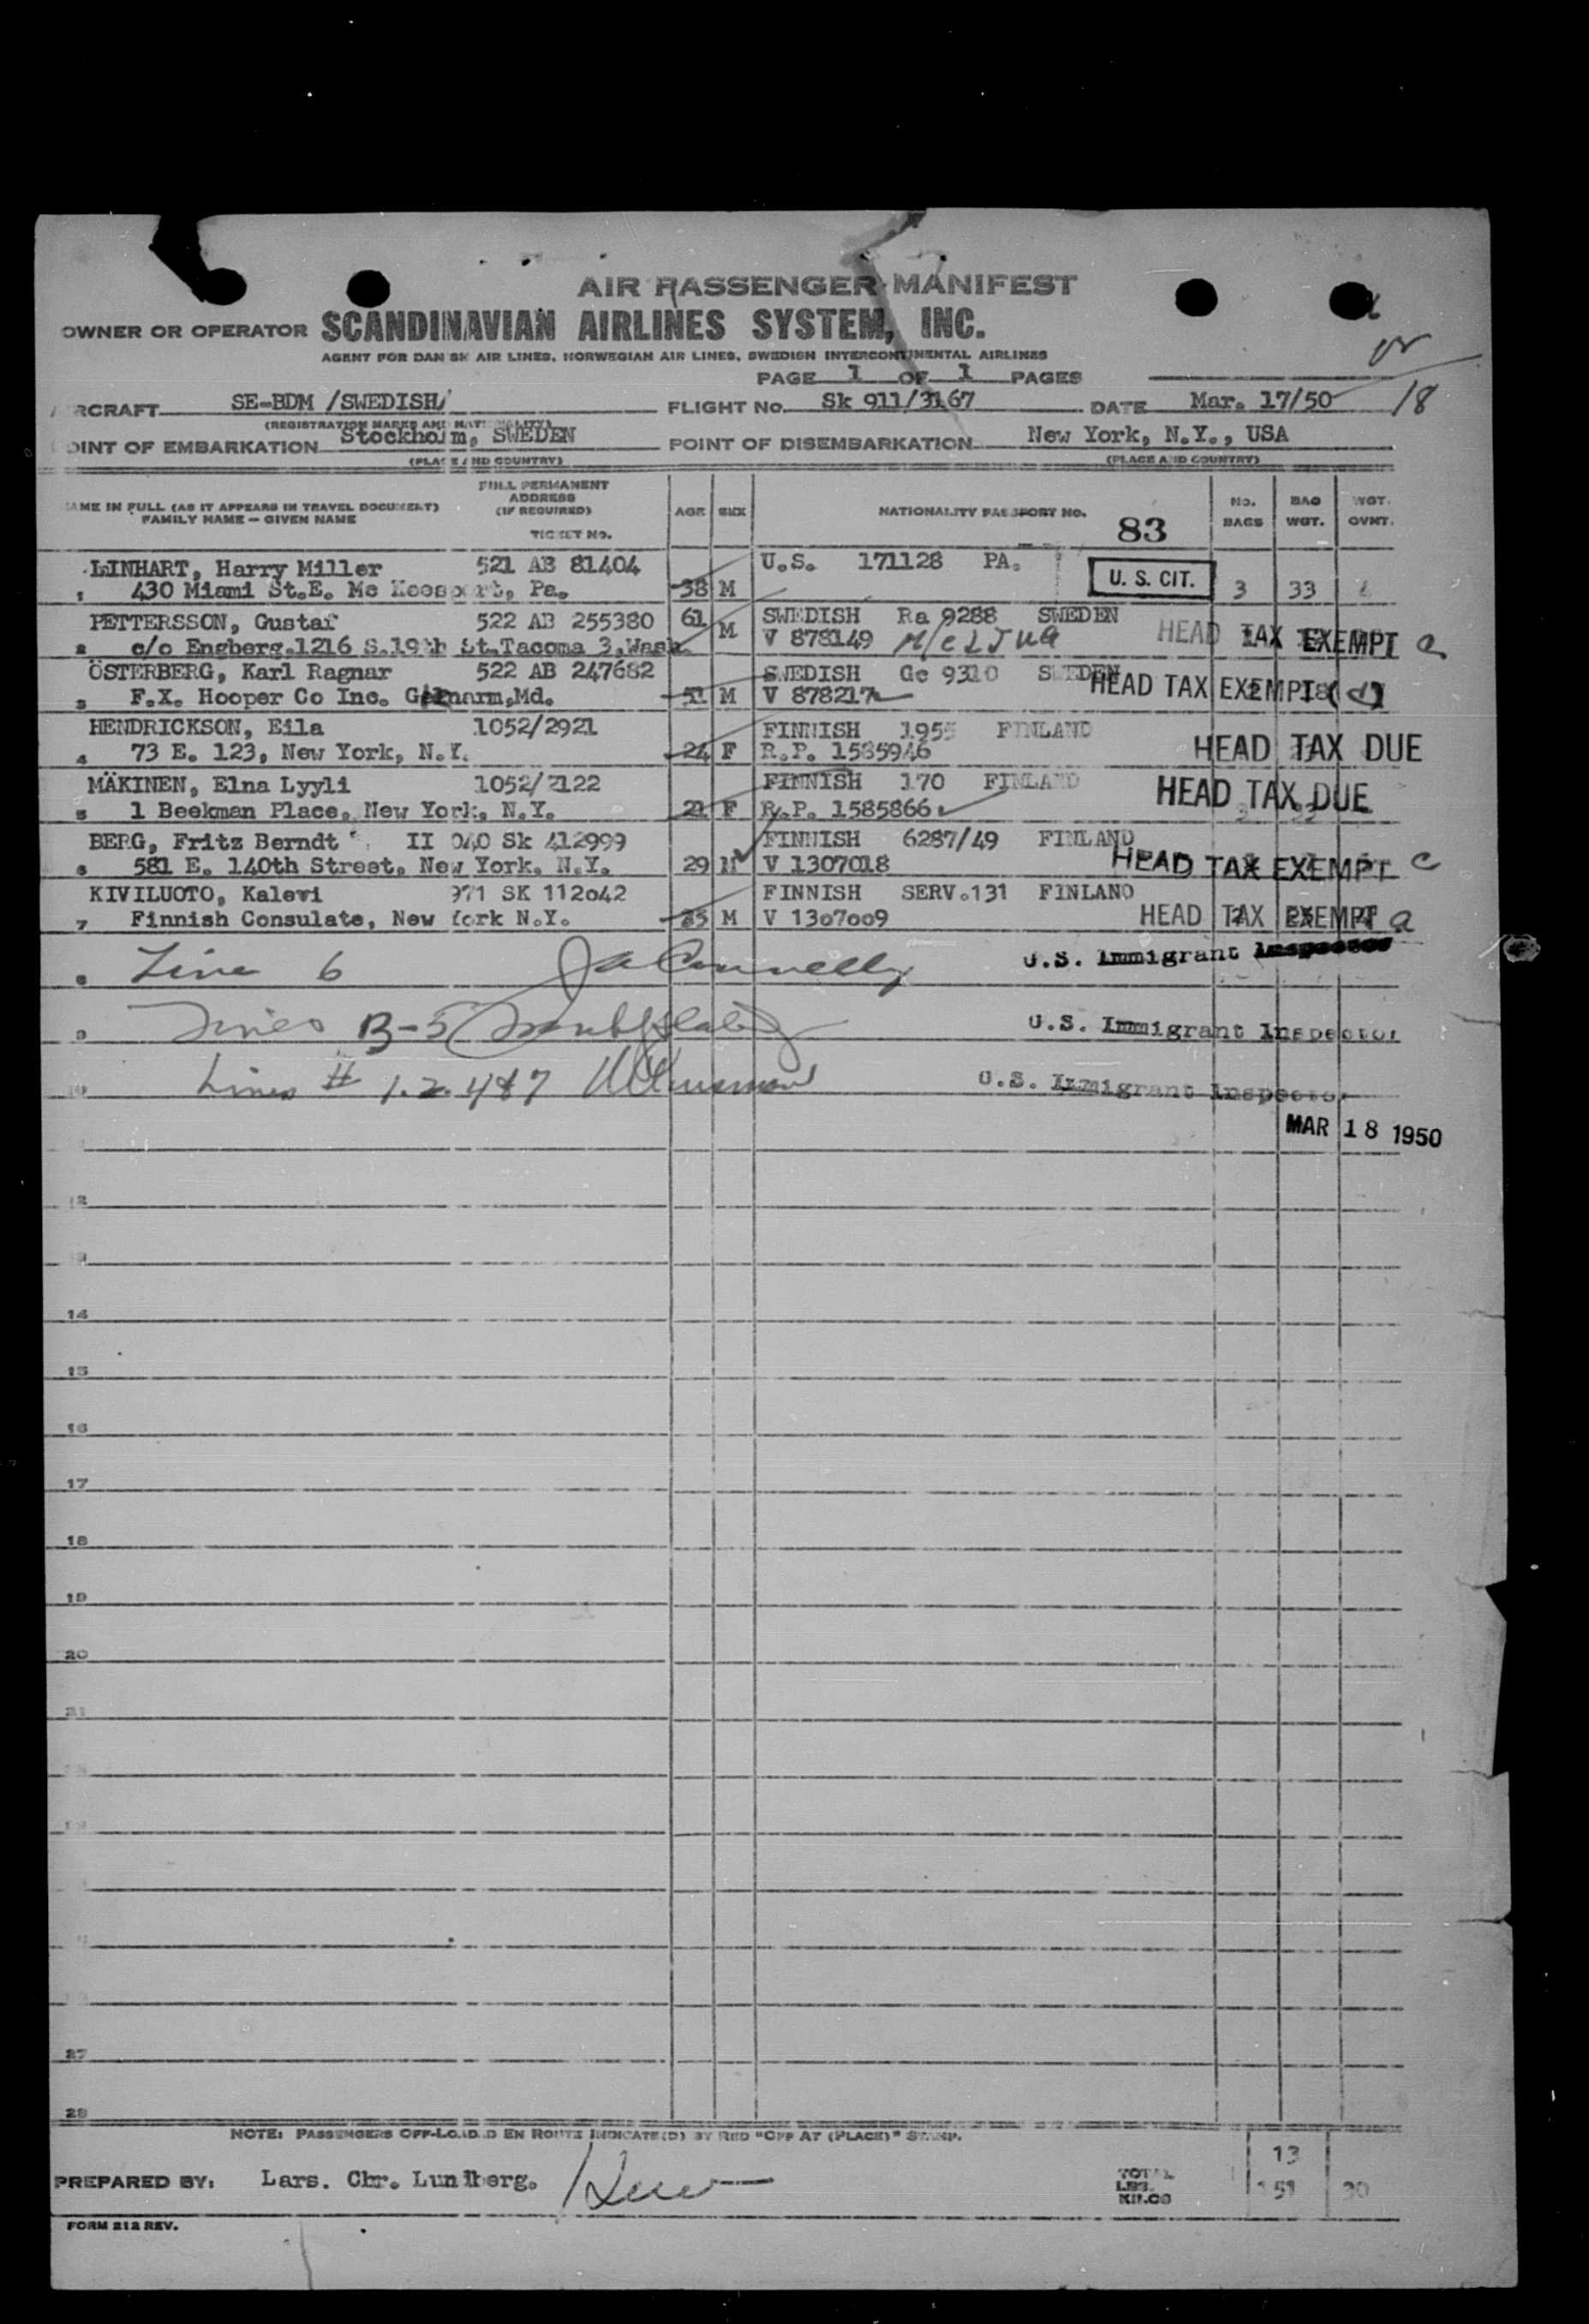 AIR PASSENGER MANIFEST
OWNER OR OPERATOR SCANDINAVIAN AIRLINES SYSTEM, INC.
AGENT FOR DANISH AIR LINES, NORWEGIAN AIR LINES, SWEDISH INTERCONTINENTAL AIRLINES
PAGE 1 OF 1 PAGES
AIRCRAFT SE-BDM /SWEDISH/ FLIGHT No. Sk 911/3167 DATE Mar. 17/50 18
(REGISTRATION MARKS AND NATIONALITY)
POINT OF EMBARKATION Stockholm, SWEDEN POINT OF DISEMBARKATION New York, N.Y., USA
(PLACE AND COUNTRY) (PLACE AND COUNTRY)
NAME IN FULL (AS IT APPEARS IN TRAVEL DOCUMENT) FAMILY NAME — GIVEN NAME FULL PERMANENT ADDRESS (IF REQUIRED) TICKET No. AGE SEX NATIONALITY PASSPORT NO. 83 No. BAGS BAG WGT. WGT. OVNT.
LINHART, Harry Miller 521 AB 81404 U.S. 171128 PA. U. S. CIT.
1 430 Miami St.E. Mc Keesport, Pa. 38 M 3 33
PETTERSSON, Gustaf 522 AB 255380 61 M SWEDISH Ra 9288 SWEDEN
2 c/o Engberg.1216 S.19th St.Tacoma 3,Wash. V 878149 HEAD TAX EXEMPT a
ÖSTERBERG, Karl Ragnar 522 AB 247682 SWEDISH Gc 9310 SWEDEN
3 F.X. Hooper Co Inc. Glenarm,Md. 51 M V 878217 HEAD TAX EXEMPT (d)
HENDRICKSON, Eila 1052/2921 FINNISH 1955 FINLAND
4 73 E. 123, New York, N.Y. 24 F R.P. 1585946 HEAD TAX DUE
MÄKINEN, Elna Lyyli 1052/2122 FINNISH 170 FINLAND
5 1 Beekman Place, New York, N.Y. 21 F R.P. 1585866 HEAD TAX DUE
BERG, Fritz Berndt II 040 Sk 412999 FINNISH 6287/49 FINLAND
6 581 E. 140th Street, New York, N.Y. 29 M V 1307018 HEAD TAX EXEMPT c
KIVILUOTO, Kalevi 971 SK 112o42 FINNISH SERV.131 FINLAND
7 Finnish Consulate, New York N.Y. 35 M V 13o7oo9 HEAD TAX EXEMPT a
8 Line 6 JA Connelly U.S. Immigrant Inspector
9 Lines U.S. Immigrant Inspector
10 Lines # 1.2.4&7 U.S. Immigrant Inspector
MAR 18 1950
12
13
14
15
16
17
18
19
20
21
27
28
NOTE: PASSENGERS OFF-LOADED EN ROUTE INDICATE(D) BY RED "OFF AT (PLACE)" STAMP.
PREPARED BY: Lars. Chr. Lundberg. TOTAL LBS. KILOS 13 151 30
FORM 212 REV.